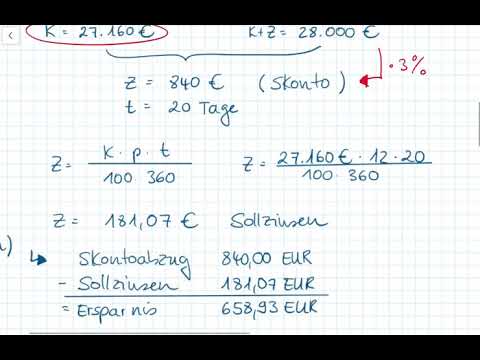 K = 27.160 € K+Z = 28.000 €
· 3%
Z = 840 € (Skonto)
t = 20 Tage
Z = K · p · t / 100 · 360 Z = 27.160 € · 12 · 20 / 100 · 360
Z = 181,07 € Sollzinsen
)
↳ Skontoabzug 840,00 EUR
- Sollzinsen 181,07 EUR
= Ersparnis 658,93 EUR